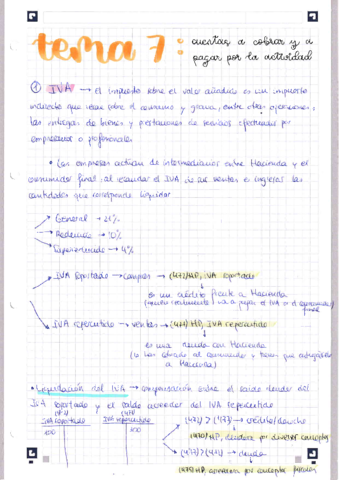 tema 7: cuentas a cobrar y a
pagar por la actividad
① IVA → el impuesto sobre el valor añadido es un impuesto
indirecto que recae sobre el consumo y grava, entre otras operaciones,
las entregas de bienes y prestaciones de servicios efectuadas por
empresarios o profesionales
• Las empresas actúan de intermediarios entre Hacienda y el
consumidor final al recaudar el IVA de sus ventas e ingresar las
cantidades que corresponde liquidar
General → 21%
Reducido → 10%
Superreducido → 4%
IVA soportado → compras → (472) HP, IVA soportado
es un crédito frente a Hacienda
IVA repercutido → ventas → (477) HP, IVA repercutido
es una deuda con Hacienda
(lo has cobrado al consumidor y tienes que
a Hacienda)
• Liquidación del IVA → compensación entre el saldo deudor del
IVA soportado y el saldo acreedor del IVA repercutido
(472) (477)
IVA soportado IVA repercutido
(472) > (477) → crédito/derecho
(4700) HP, deudora por diversos conceptos
(477) > (472) → deuda
(4750) HP, acreedora por conceptos fiscales